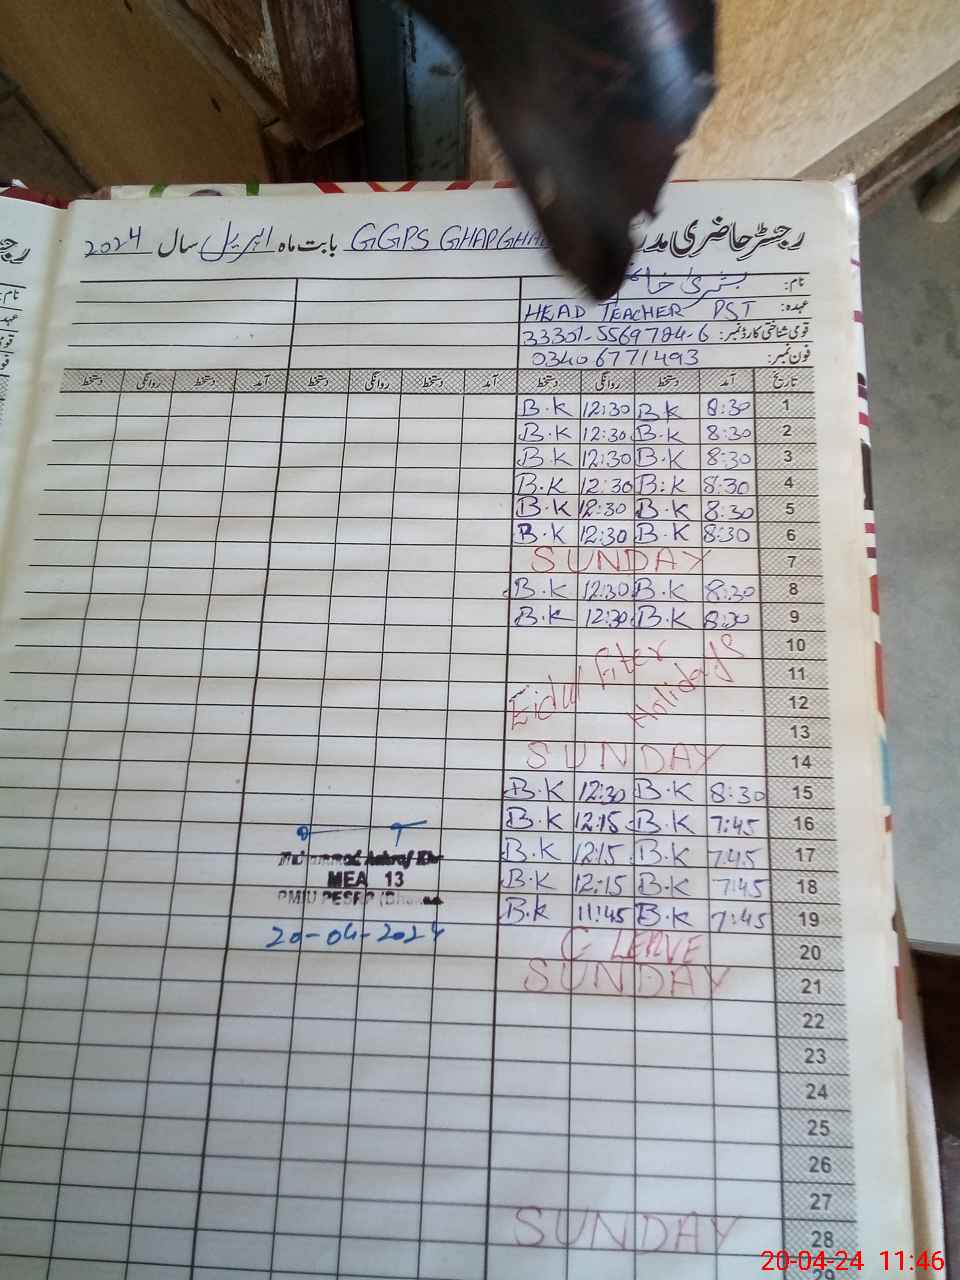 رجسٹر حاضری مدر
بابت ماہ اپریل سال 2024
GGPS
نام: بشریٰ
عہدہ: HEAD TEACHER PST
قومی شناختی کارڈ نمبر: 33301-5569784-6
فون نمبر: 0340 6771493
تاریخ آمد دستخط روانگی دستخط آمد دستخط روانگی دستخط آمد دستخط روانگی دستخط
1 8:30 B.K 12:30 B.K
2 8:30 B.K 12:30 B.K
3 8:30 B.K 12:30 B.K
4 8:30 B.K 12:30 B.K
5 8:30 B.K 12:30 B.K
6 8:30 B.K 12:30 B.K
7 SUNDAY
8 8:30 B.K 12:30 B.K
9 8:30 B.K 12:30 B.K
10
11 Eidul Fiter
12 Holidays
13
14 SUNDAY
15 8:30 B.K 12:30 B.K
16 7:45 B.K 12:15 B.K
17 7:45 B.K 12:15 B.K
18 7:45 B.K 12:15 B.K
19 7:45 B.K 11:45 B.K
20 C LEAVE
21 SUNDAY
22
23
24
25
26
27
28 SUNDAY
29
Muhammad Ashraf
MEA 13
PMIU PESRP
20-04-2024
20-04-24 11:46